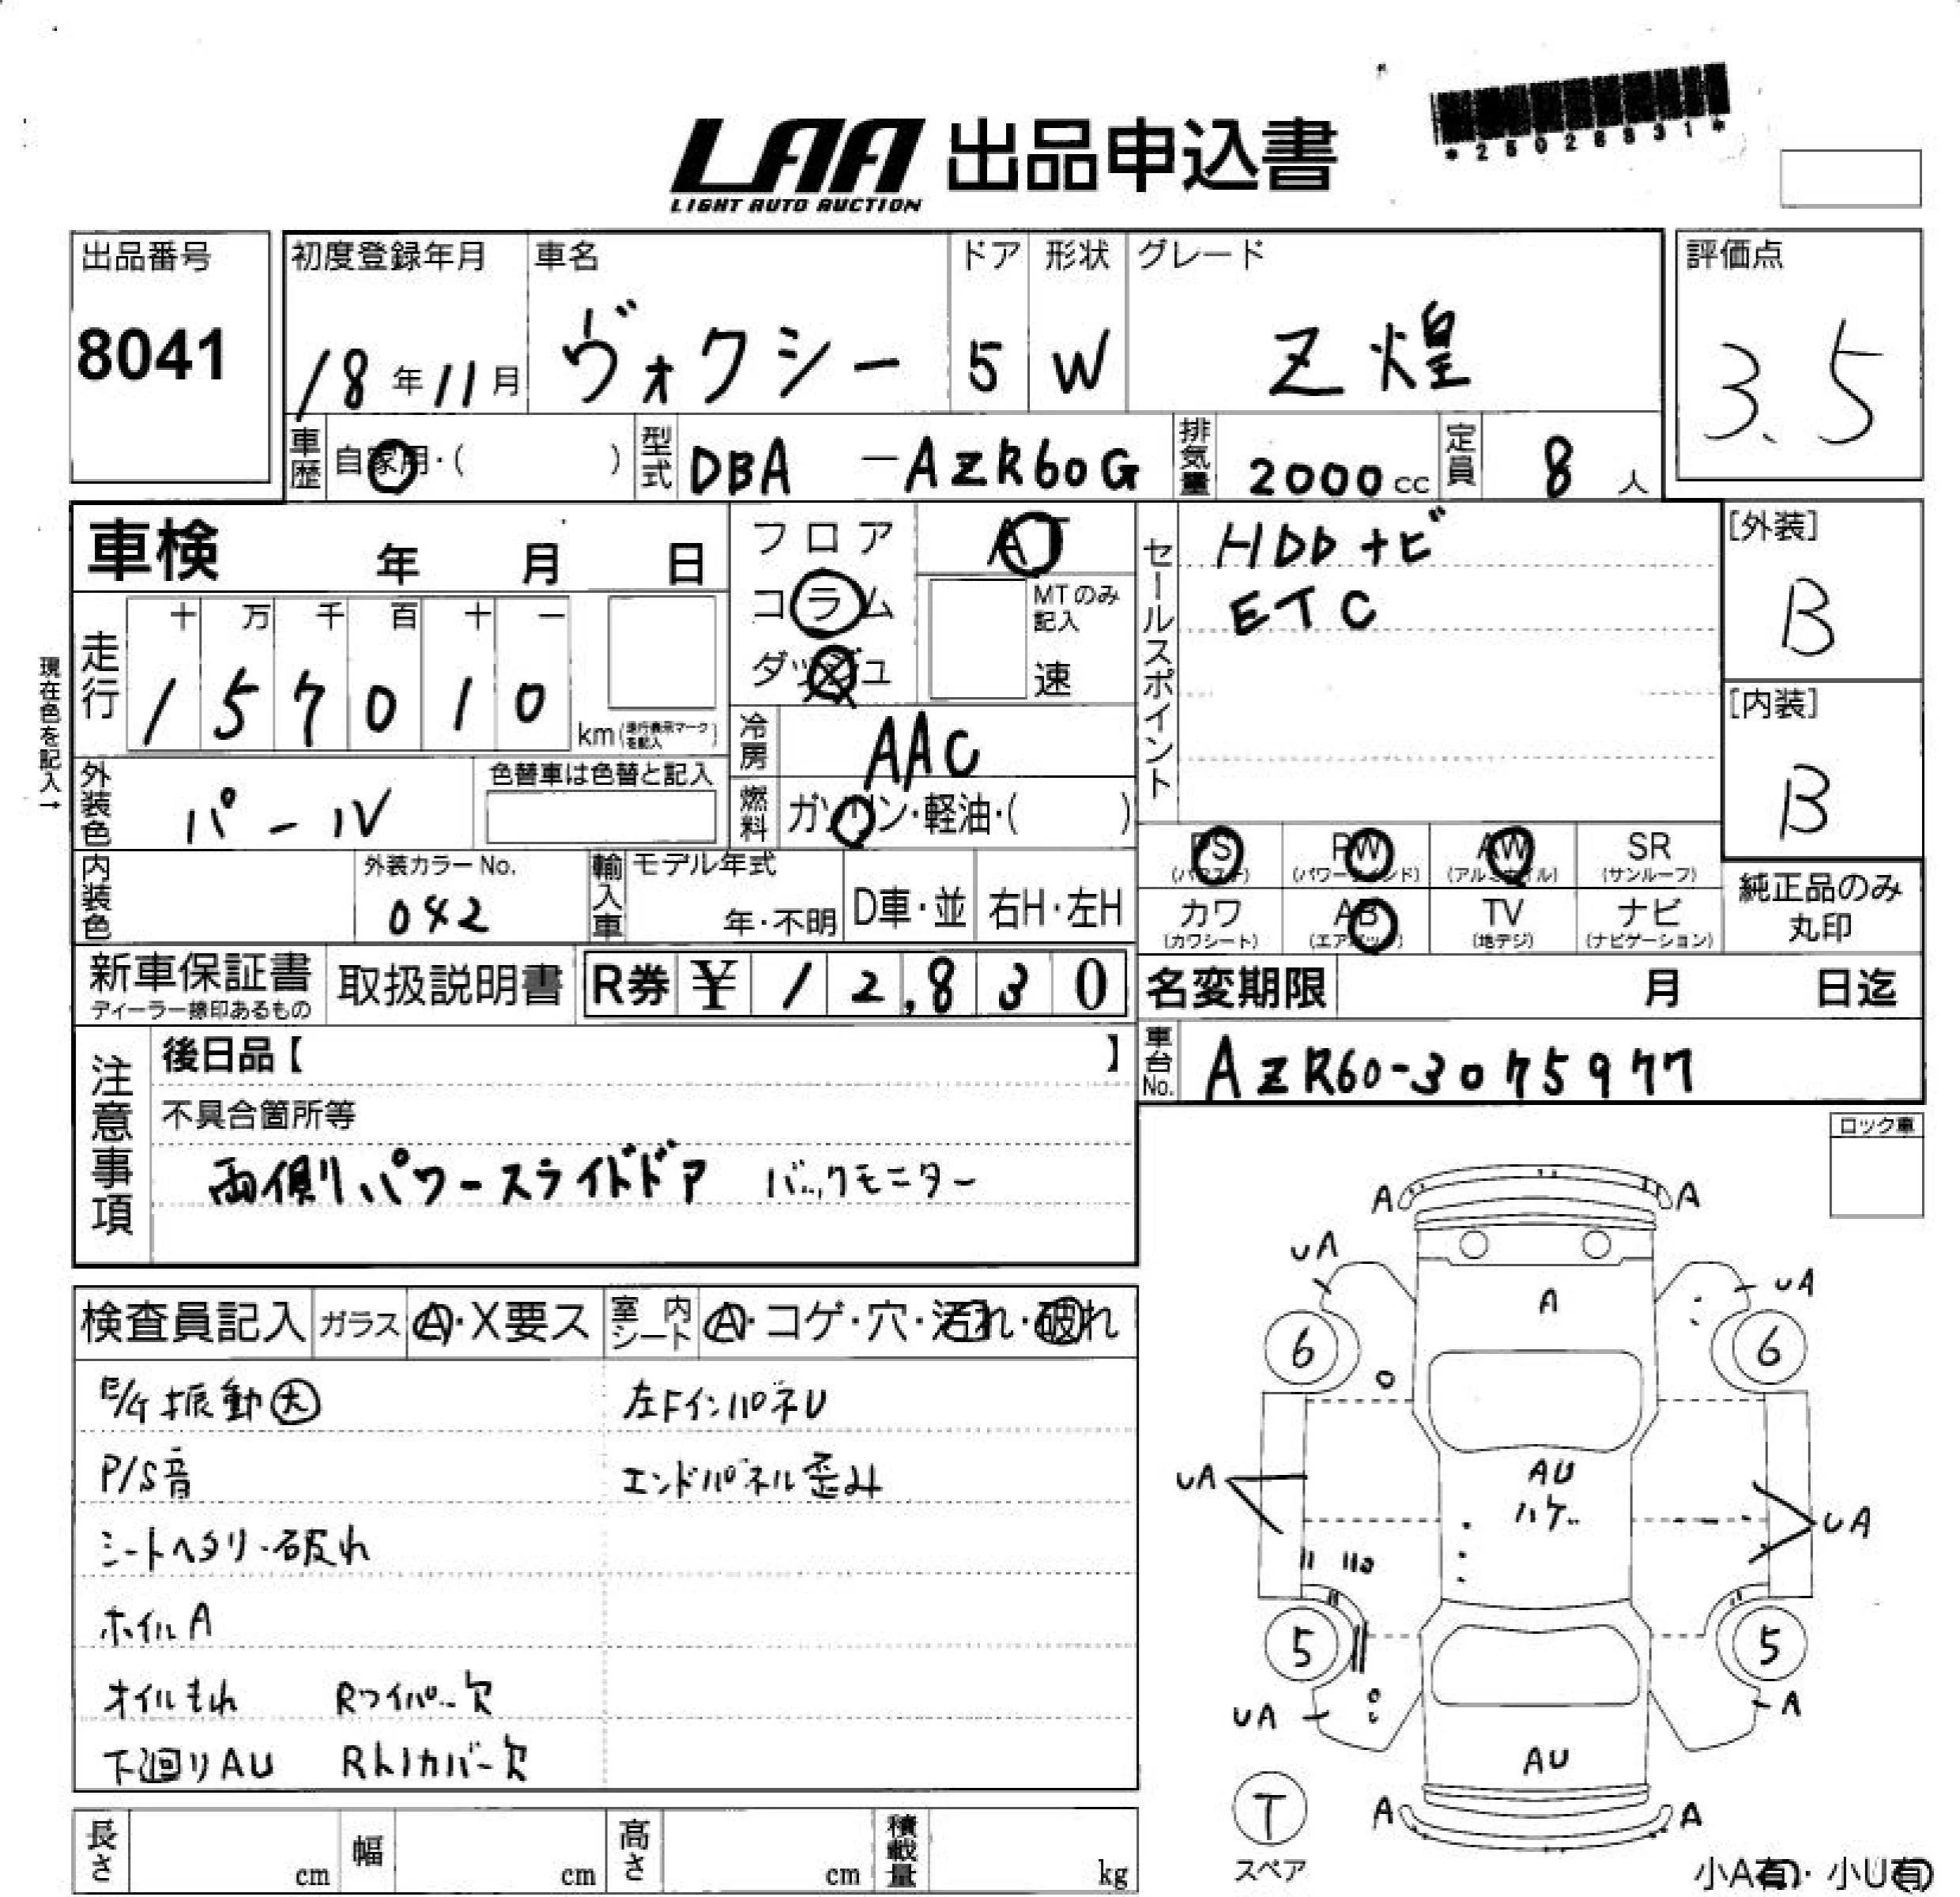 *25026831*
LAA 出品申込書
LIGHT AUTO AUCTION
出品番号
8041
初度登録年月
18年11月
車名
ヴォクシー
ドア
5
形状
W
グレード
Z煌
評価点
3.5
車歴
自家用・( )
型式
DBA -AZR60G
排気量
2000cc
定員
8人
車検 年 月 日
フロア
コラム
ダッシュ
AT
MTのみ記入
速
セールスポイント
HDDナビ
ETC
[外装]
B
[内装]
B
現在色を記入→
走行
十 万 千 百 十 一
1 5 7 0 1 0
km(走行表示マークを記入)
冷房
AAC
外装色
パール
色替車は色替と記入
燃料
ガソリン・軽油・( )
内装色
外装カラーNo.
042
輸入車
モデル年式
年・不明
D車・並
右H・左H
PS
(パワステ)
PW
(パワーウインド)
AW
(アルミホイル)
SR
(サンルーフ)
カワ
(カワシート)
AB
(エアバッグ)
TV
(地デジ)
ナビ
(ナビゲーション)
純正品のみ
丸印
新車保証書
ディーラー捺印あるもの
取扱説明書
R券 ¥ 12,830
名変期限 月 日迄
車台No.
AZR60-3075977
注意事項
後日品【 】
不具合箇所等
両側パワースライドドア バックモニター
ロック車
検査員記入
ガラス
A・X要ス
室内シート
A・コゲ・穴・汚れ・破れ
E/G振動大
左FインパネU
P/S音
エンドパネル歪み
シートヘタリ・破れ
ホイルA
オイルもれ Rワイパー欠
下廻りAU RトノカバーA欠
A A
UA UA
A
6 6
AU
ハゲ
UA UA
5 5
UA A
AU
T
スペア
A A
小A有・小U有
長さ cm
幅 cm
高さ cm
積載量 kg